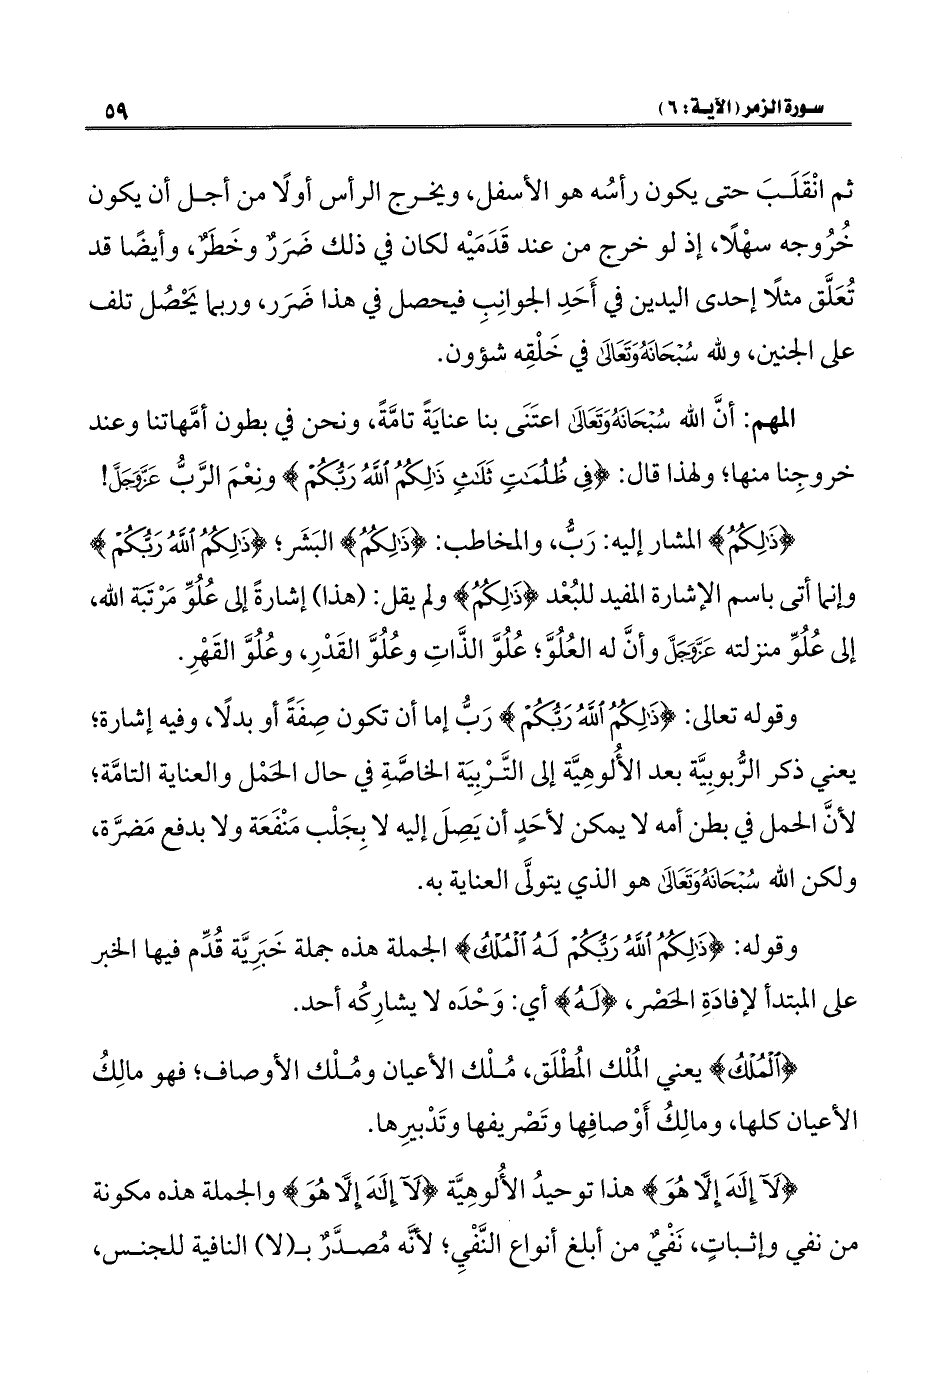 سورة الزمر (الآية: ٦) ٥٩
ثم انْقَلَبَ حتى يكون رأسُه هو الأسفل، ويخرج الرأس أولًا من أجل أن يكون
خُرُوجه سهْلًا، إذ لو خرج من عند قَدَمَيْه لكان في ذلك ضَرَرٌ وخَطَرٌ، وأيضًا قد
تُعَلَّق مثلًا إحدى اليدين في أَحَدِ الجوانِبِ فيحصل في هذا ضَرَر، وربما يَحْصُل تلف
على الجنين، ولله سُبْحَانَهُ وَتَعَالَى في خَلْقِه شؤون.
المهم: أنَّ الله سُبْحَانَهُ وَتَعَالَى اعتَنَى بنا عنايَةً تامَّةً، ونحن في بطون أمَّهاتنا وعند
خروجِنا منها؛ ولهذا قال: ﴿فِي ظُلُمَٰتٍ ثَلَٰثٍ ذَٰلِكُمُ ٱللَّهُ رَبُّكُمْ﴾ ونِعْمَ الرَّبُّ عَزَّوَجَلَّ!
﴿ذَٰلِكُمُ﴾ المشار إليه: رَبُّ، والمخاطب: ﴿ذَٰلِكُمُ﴾ البَشَر؛ ﴿ذَٰلِكُمُ ٱللَّهُ رَبُّكُمْ﴾
وإنما أتى باسم الإشارة المفيد للبُعْد ﴿ذَٰلِكُمُ﴾ ولم يقل: (هذا) إشارةً إلى عُلُوِّ مَرْتَبَة الله،
إلى عُلُوِّ منزلته عَزَّوَجَلَّ وأنَّ له العُلُوَّ؛ عُلُوَّ الذَّاتِ وعُلُوَّ القَدْرِ، وعُلُوَّ القَهْرِ.
وقوله تعالى: ﴿ذَٰلِكُمُ ٱللَّهُ رَبُّكُمْ﴾ رَبُّ إما أن تكون صِفَةً أو بدلًا، وفيه إشارة؛
يعني ذكر الرُّبوبيَّة بعد الأُلوهيَّة إلى التَّرْبِيَة الخاصَّةِ في حال الحَمْل والعناية التامَّة؛
لأنَّ الحمل في بطن أمه لا يمكن لأحَدٍ أن يَصِلَ إليه لا بِجَلْب مَنْفَعَة ولا بدفع مَضرَّة،
ولكن الله سُبْحَانَهُ وَتَعَالَى هو الذي يتولَّى العناية به.
وقوله: ﴿ذَٰلِكُمُ ٱللَّهُ رَبُّكُمْ لَهُ ٱلْمُلْكُ﴾ الجملة هذه جملة خَبَرِيَّة قُدِّم فيها الخبر
على المبتدأ لإفادَةِ الحَصْر، ﴿لَهُ﴾ أي: وَحْدَه لا يشارِكُه أحد.
﴿ٱلْمُلْكُ﴾ يعني المُلْك المُطْلَق، مُلْك الأعيان ومُلْك الأوصاف؛ فهو مالِكُ
الأعيان كلها، ومالِكُ أَوْصافِها وتَصْريفها وتَدْبيرِها.
﴿لَآ إِلَٰهَ إِلَّا هُوَ﴾ هذا توحيدُ الأُلوهيَّة ﴿لَآ إِلَٰهَ إِلَّا هُوَ﴾ والجملة هذه مكونة
من نفي وإثباتٍ، نَفْيٌ من أبلغ أنواع النَّفْيِ؛ لأنَّه مُصدَّرٌ بـ(لا) النافية للجنس،